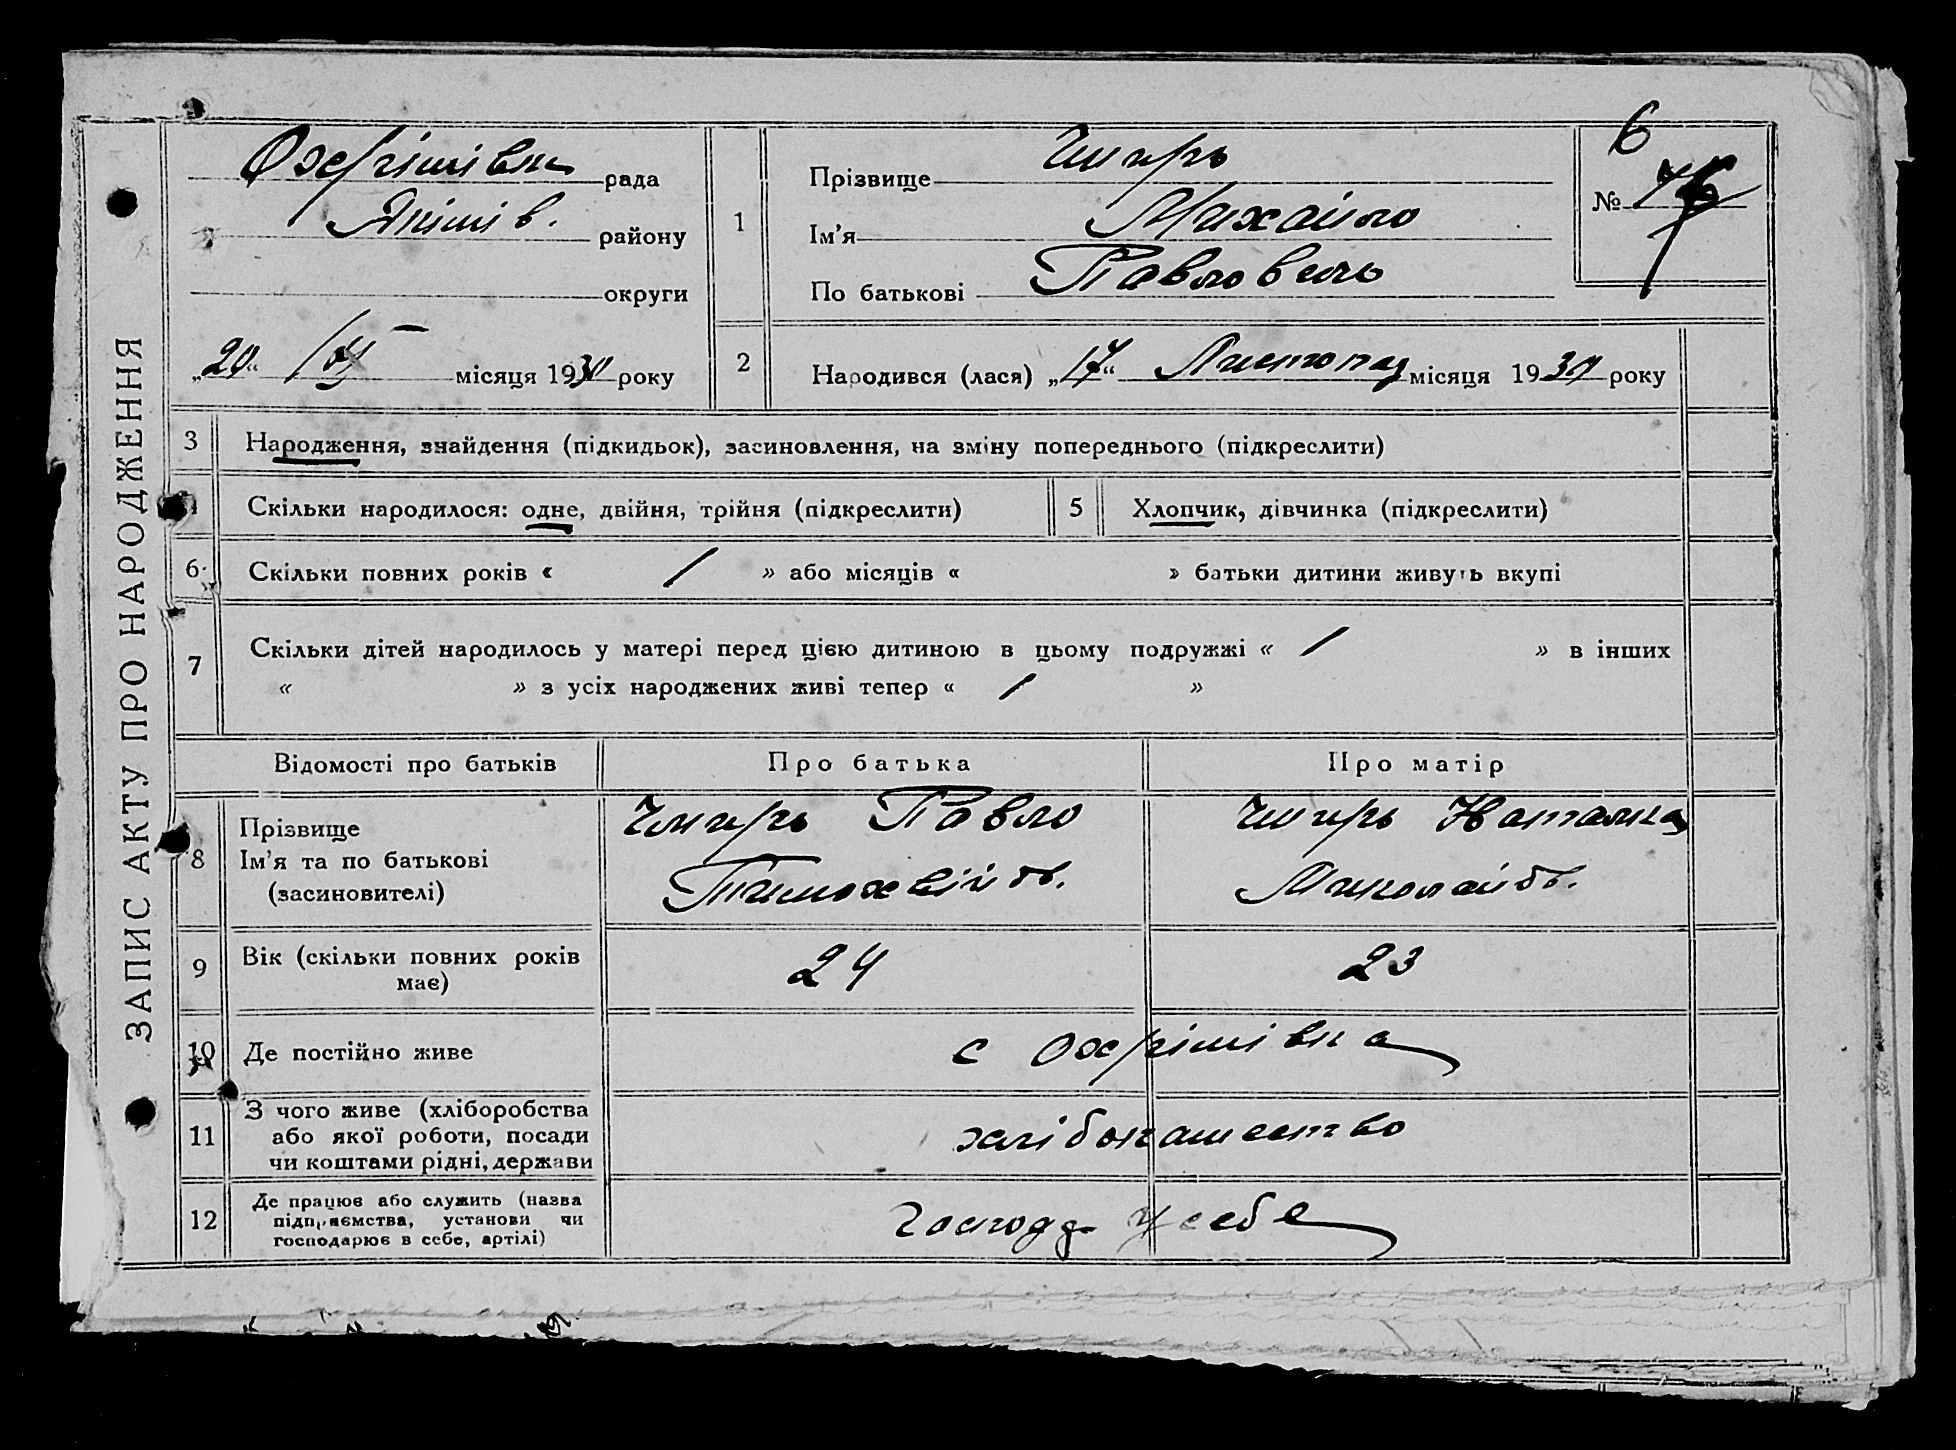 ЗАПИС АКТУ ПРО НАРОДЖЕННЯ
Охрімівка рада
Якімів. району
округи
„20“ місяця 1930 року
1
Прізвище Чмирь
Ім'я Михайло
По батькові Павлович
6
№
2
Народився (лася) „17“ Листопад місяця 1930 року
3 Народження, знайдення (підкидьок), засиновлення, на зміну попереднього (підкреслити)
Скільки народилося: одне, двійня, трійня (підкреслити) 5 Хлопчик, дівчинка (підкреслити)
6 Скільки повних років « / » або місяців « » батьки дитини живуть вкупі
7 Скільки дітей народилось у матері перед цією дитиною в цьому подружжі « / » в інших
« » з усіх народжених живі тепер « / »
Відомості про батьків Про батька Про матір
8 Прізвище
Ім'я та по батькові
(засиновителі)
Чмирь Павло
Тимохвійов.
Чмирь Наталка
Миколайов.
9 Вік (скільки повних років
має)
24 23
10 Де постійно живе с Охрімівка
11 З чого живе (хліборобства
або якої роботи, посади
чи коштами рідні, держави
хлібопашество
12 Де працює або служить (назва
підприємства, установи чи
господарює в себе, артілі)
Господ. у себе